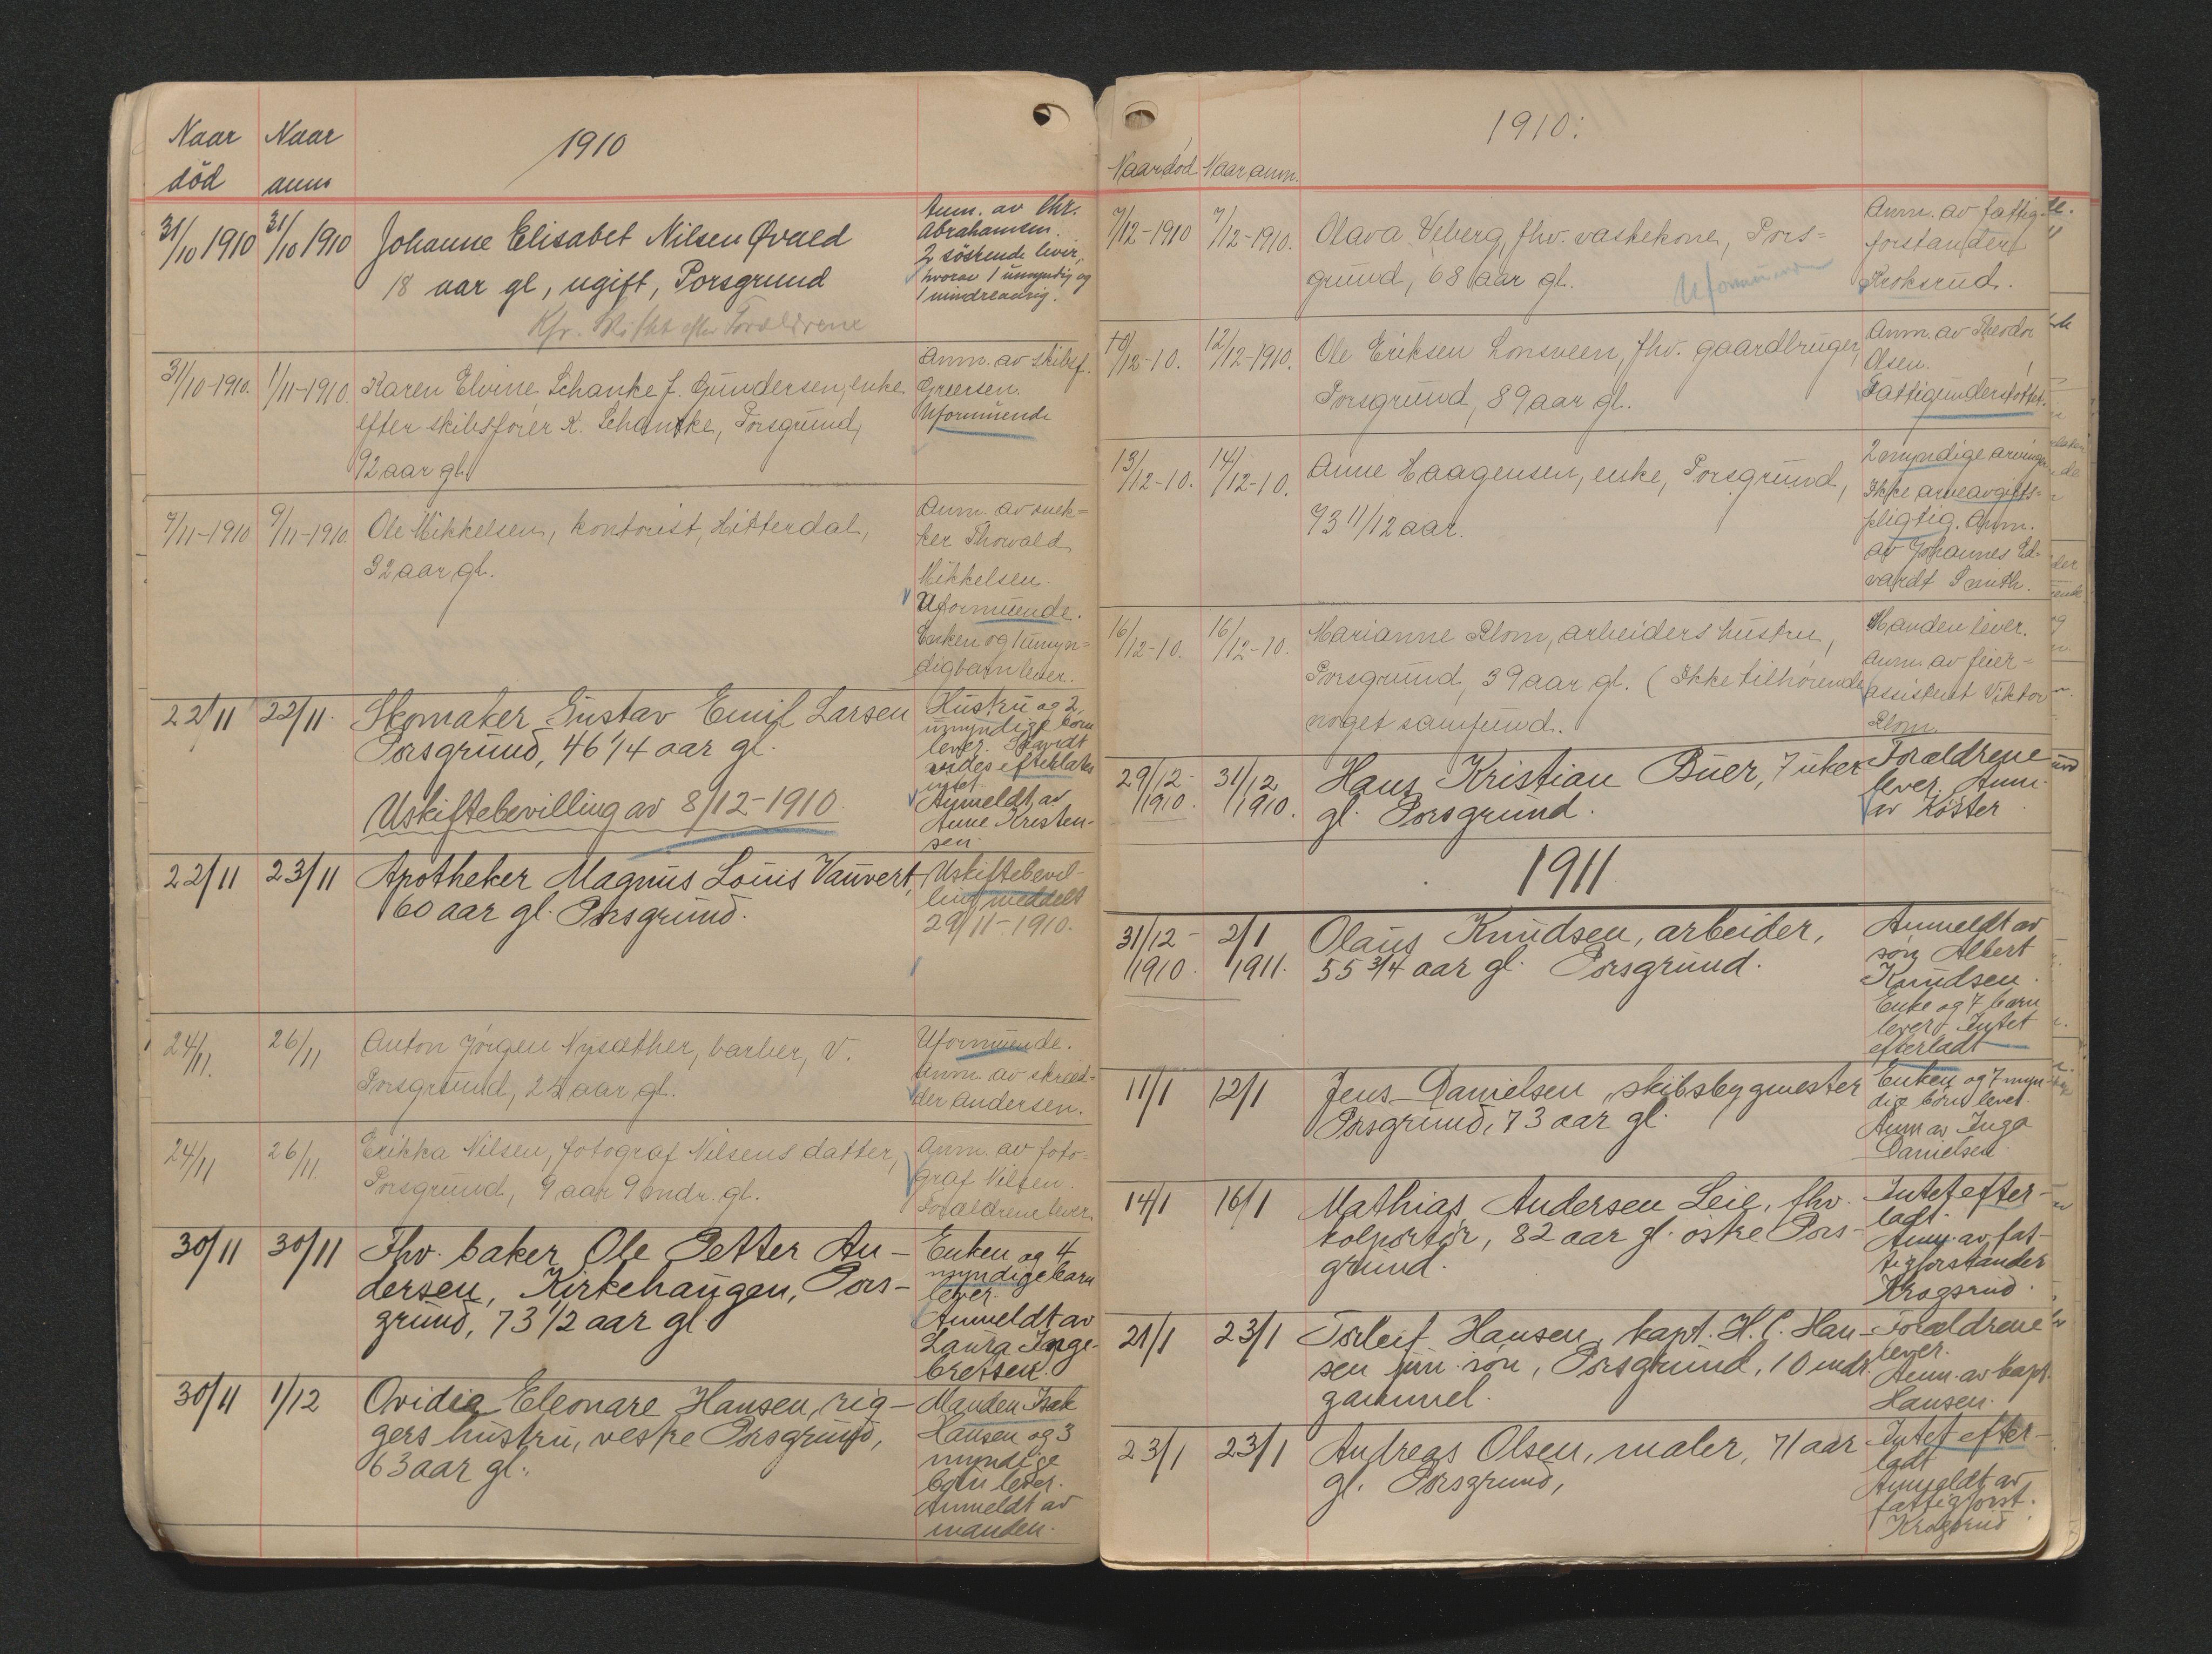 Naar Naar
død anm
1910
31/10 1910 31/10 1910 Johanne Elisabet Nilsen Øvald
18 aar gl, ugift, Porsgrund
Kfr. Skiftet efter Forældrene
Anm. av Chr.
Abrahamsen.
2 söskende lever,
hvorav 1 umyndig og
1 mindreaarig.
31/10-1910. 1/11-1910. Karen Elvine Schanke f. Gundersen, enke
efter skibsfører K. Schanke, Porsgrund,
92 aar gl.
Anm. av skibsf.
Greersen.
Uformuende
7/11-1910 9/11-1910. Ole Mikkelsen, kontorist, Hitterdal,
32 aar gl.
Anm. av snek=
ker Thorvald
Mikkelsen.
Uformuende.
Enken og 1 umyn=
dig barn lever.
22/11 22/11. Skomaker Gustav Emil Larsen
Porsgrund, 46 1/4 aar gl.
Uskiftebevilling av 8/12-1910.
Hustru og 2
umyndige børn
lever. Saavidt
vides efterlates
intet.
Anmeldt av
Anne Kristen-
sen
22/11 23/11 Apotheker Magnus Louis Vauvert,
60 aar gl. Porsgrund.
Uskiftebevil-
ling meddelt
29/11-1910.
24/11. 26/11 Anton Jörgen Nysæther, barber, V.
Porsgrund, 24 aar gl.
Uformuende.
Anm. av skræd=
der Andersen.
24/11 26/11. Erikka Nilsen, fotograf Nilsens datter,
Porsgrund, 9 aar 9 mdr. gl.
Anm. av foto=
graf Nilsen.
Forældrene lever.
30/11 30/11 Fhv. baker Ole Petter An-
dersen, Kirkehaugen, Pors-
grund, 73 1/2 aar gl.
Enken og 4
myndige barn
lever.
Anmeldt av
Laura Inge-
bretsen.
30/11 1/12 Ovidia Eleonare Hansen, rig-
gers hustru, vestre Porsgrund,
63 aar gl.
Manden Isak
Hansen og 3
myndige
børn lever.
Anmeldt av
manden.
1910.
Naar død Naar anm.
7/12-1910 7/12-1910. Olava Veberg, fhv. vaskekone, Pors=
grund, 68 aar gl.
Uformuende
Anm. av fattig-
forstander
Kroksrud.
10/12-10. 12/12-1910. Ole Eriksen Lonsveen, fhv. gaardbruger,
Porsgrund, 89 aar gl.
Anm. av Theodor
Olsen.
Fattigunderstøttet.
13/12-10. 14/12-10. Anne Haagensen, enke, Porsgrund,
73 11/12 aar.
2 myndige arvinger
Ikke arveavgifts=
pligtig. Anm.
av Johannes Ed-
vardt Smith.
16/12-10. 16/12-10. Marianne Blom, arbeiders hustru,
Porsgrund, 39 aar gl. (Ikke tilhørende
noget samfund.
Manden lever.
Anm. av feier=
assistent Viktor
Blom.
29/12- 1910. 31/12 1910. Hans Kristian Buer, 7 uker
gl. Porsgrund.
Forældrene
lever. Anm.
av Köster
1911
31/12- 1910. 2/1 1911. Olaus Knudsen, arbeider,
55 3/4 aar gl. Porsgrund.
Anmeldt av
søn Albert
Knudsen.
Enke og 7 barn
lever. Intet
efterladt
11/1 12/1 Jens Danielsen, skibsbygmester
Porsgrund, 73 aar gl.
Enken og 7 myn-
dige børn lever.
Anm av Inga
Danielsen.
14/1 16/1 Mathias Andersen Leie, fhv.
kolportør, 82 aar gl. østre Pors-
grund.
Intet efter-
ladt.
Anm. av fat-
tigforstander
Krogsrud.
21/1 23/1 Torleif Hansen, kapt. H. C. Han-
sen jun. søn, Porsgrund, 10 mdr.
gammel.
Forældrene
lever.
Anm. av kapt.
Hansen.
23/1 23/1 Andreas Olsen, maler, 71 aar
gl. Porsgrund,
Intet efter-
ladt
Anmeldt av
fattigforst.
Krogsrud